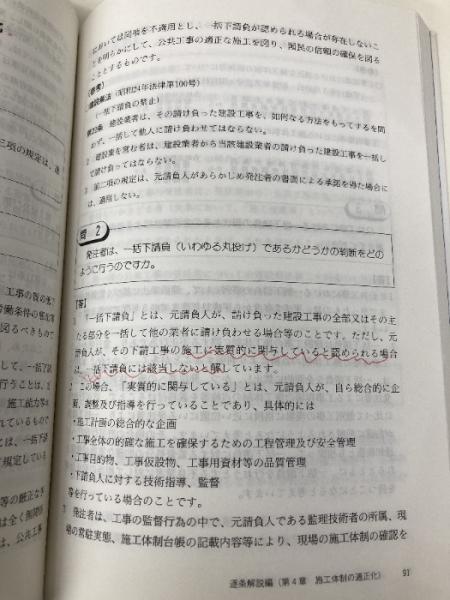 においては同項を不適用とし、一括下請負が認められる場合が存在しないこ
とを明らかにして、公共工事の適正な施工を図り、国民の信頼の確保を図る
こととするものです。
(参考)
建設業法(昭和24年法律第100号)
(一括下請負の禁止)
第22条 建設業者は、その請け負った建設工事を、如何なる方法をもってするを問
わず、一括して他人に請け負わせてはならない。
2 建設業を営む者は、建設業者から当該建設業者の請け負った建設工事を一括し
て請け負ってはならない。
3 前二項の規定は、元請負人があらかじめ発注者の書面による承諾を得た場合に
は、適用しない。
問 2
発注者は、一括下請負(いわゆる丸投げ)であるかどうかの判断をどの
ように行うのですか。
【答】
1 「一括下請負」とは、元請負人が、請け負った建設工事の全部又はその主
たる部分を一括して他の業者に請け負わせる場合等のことです。ただし、元
請負人が、その下請工事の施工に実質的に関与していると認められる場合
は、一括下請負には該当しないと解しています。
2 この場合、「実質的に関与している」とは、元請負人が、自ら総合的に企
画、調整及び指導を行っていることであり、具体的には
・施工計画の総合的な企画
・工事全体の的確な施工を確保するための工程管理及び安全管理
・工事目的物、工事仮設物、工事用資材等の品質管理
・下請負人に対する技術指導、監督
等を行っている場合のことです。
3 発注者は、工事の監督行為の中で、元請負人である監理技術者の所属、現
場の常駐実態、施工体制台帳の記載内容等により、現場の施工体制の確認を
逐条解説編(第4章 施工体制の適正化) 91
三項の規定は、適
工事の質の低下
労働条件の悪化等
図るべきもので
して、一括下
行うことは、
施工能力等
ては、一括下請
て規定している
等の厳正な
は全く無関係
は、公共工事